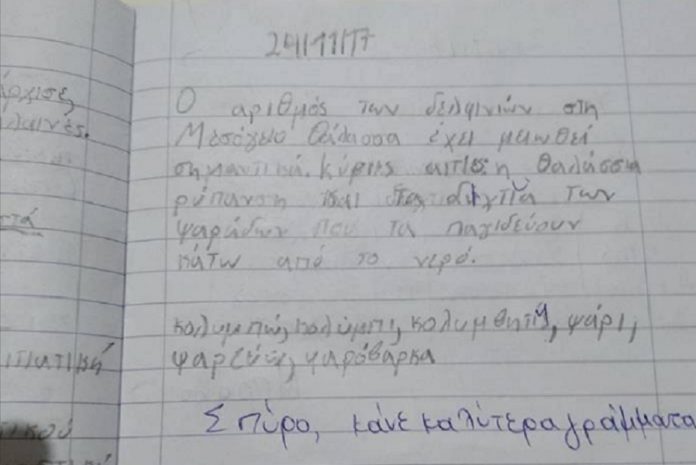 24/11/17
άρχισε
Ο αριθμός των δελφινιών στη
λαινές.
Μεσόγειο Θάλασσα έχει μειωθεί
σημαντικά. Κύριες αιτίες η θαλάσσια
ρύπανση και τα δίχτυα των
στά
ψαράδων που τα παγιδεύουν
κάτω από το νερό.
κολυμπώ, κολύμπι, κολυμβητής, ψάρι,
ιτιατική
ψαρεύω, ψαρόβαρκα
Σπύρο, κάνε καλύτερα γράμματα
τικού